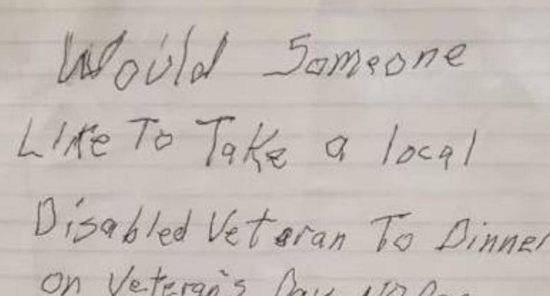 Would Someone
Like To Take a local
Disabled Veteran To Dinner
on Veteran's Day